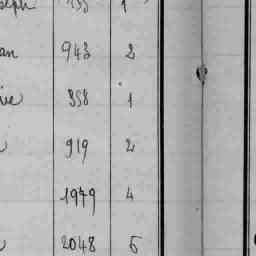 seph 1
an 943 2
vie 858 1
919 2
1979 4
2048 5